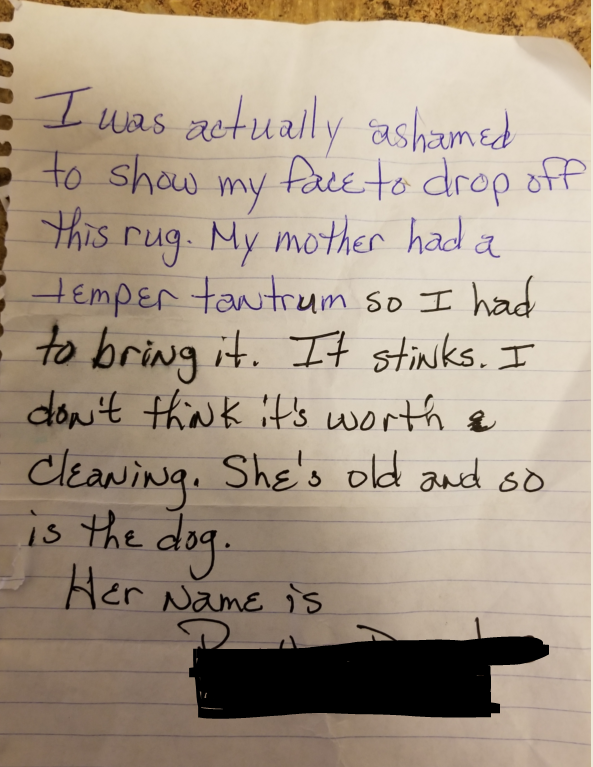 I was actually ashamed
to show my face to drop off
this rug. My mother had a
temper tantrum so I had
to bring it. It stinks. I
don't think it's worth a
cleaning. She's old and so
is the dog.
Her name is